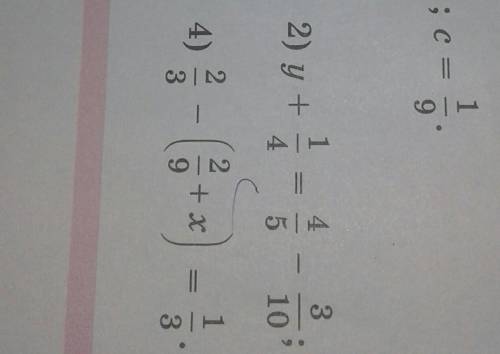 ; c = 1/9.
2) y + 1/4 = 4/5 − 3/10;
4) 2/3 − (2/9 + x) = 1/3.